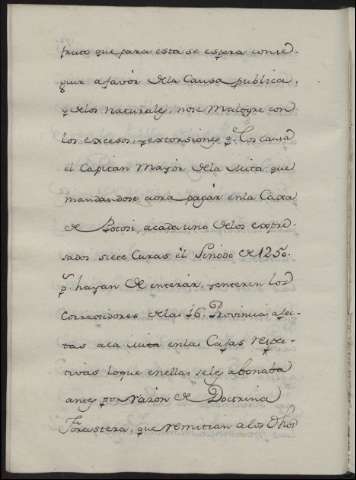 fruto que para esta se espera conse-
guir afavor dela Causa publica,
y delos naturales, nose malogre con
los excesos, y extorsiones q. los causa
el Capitan Mayor dela mita que
mandandose aora pagar enla Caxa
de Potosi, acada uno delos expre-
sados siete Curas él Sinodo de 1250.
p. hayan de enterar, y enteren los
Corregidores delas 16. Provincias afec-
tas ala mita enlas Cajas respec-
tivas loque enellas seles abonaba
antes por razón de Doctrina
Forastera, que remitian alos dhos